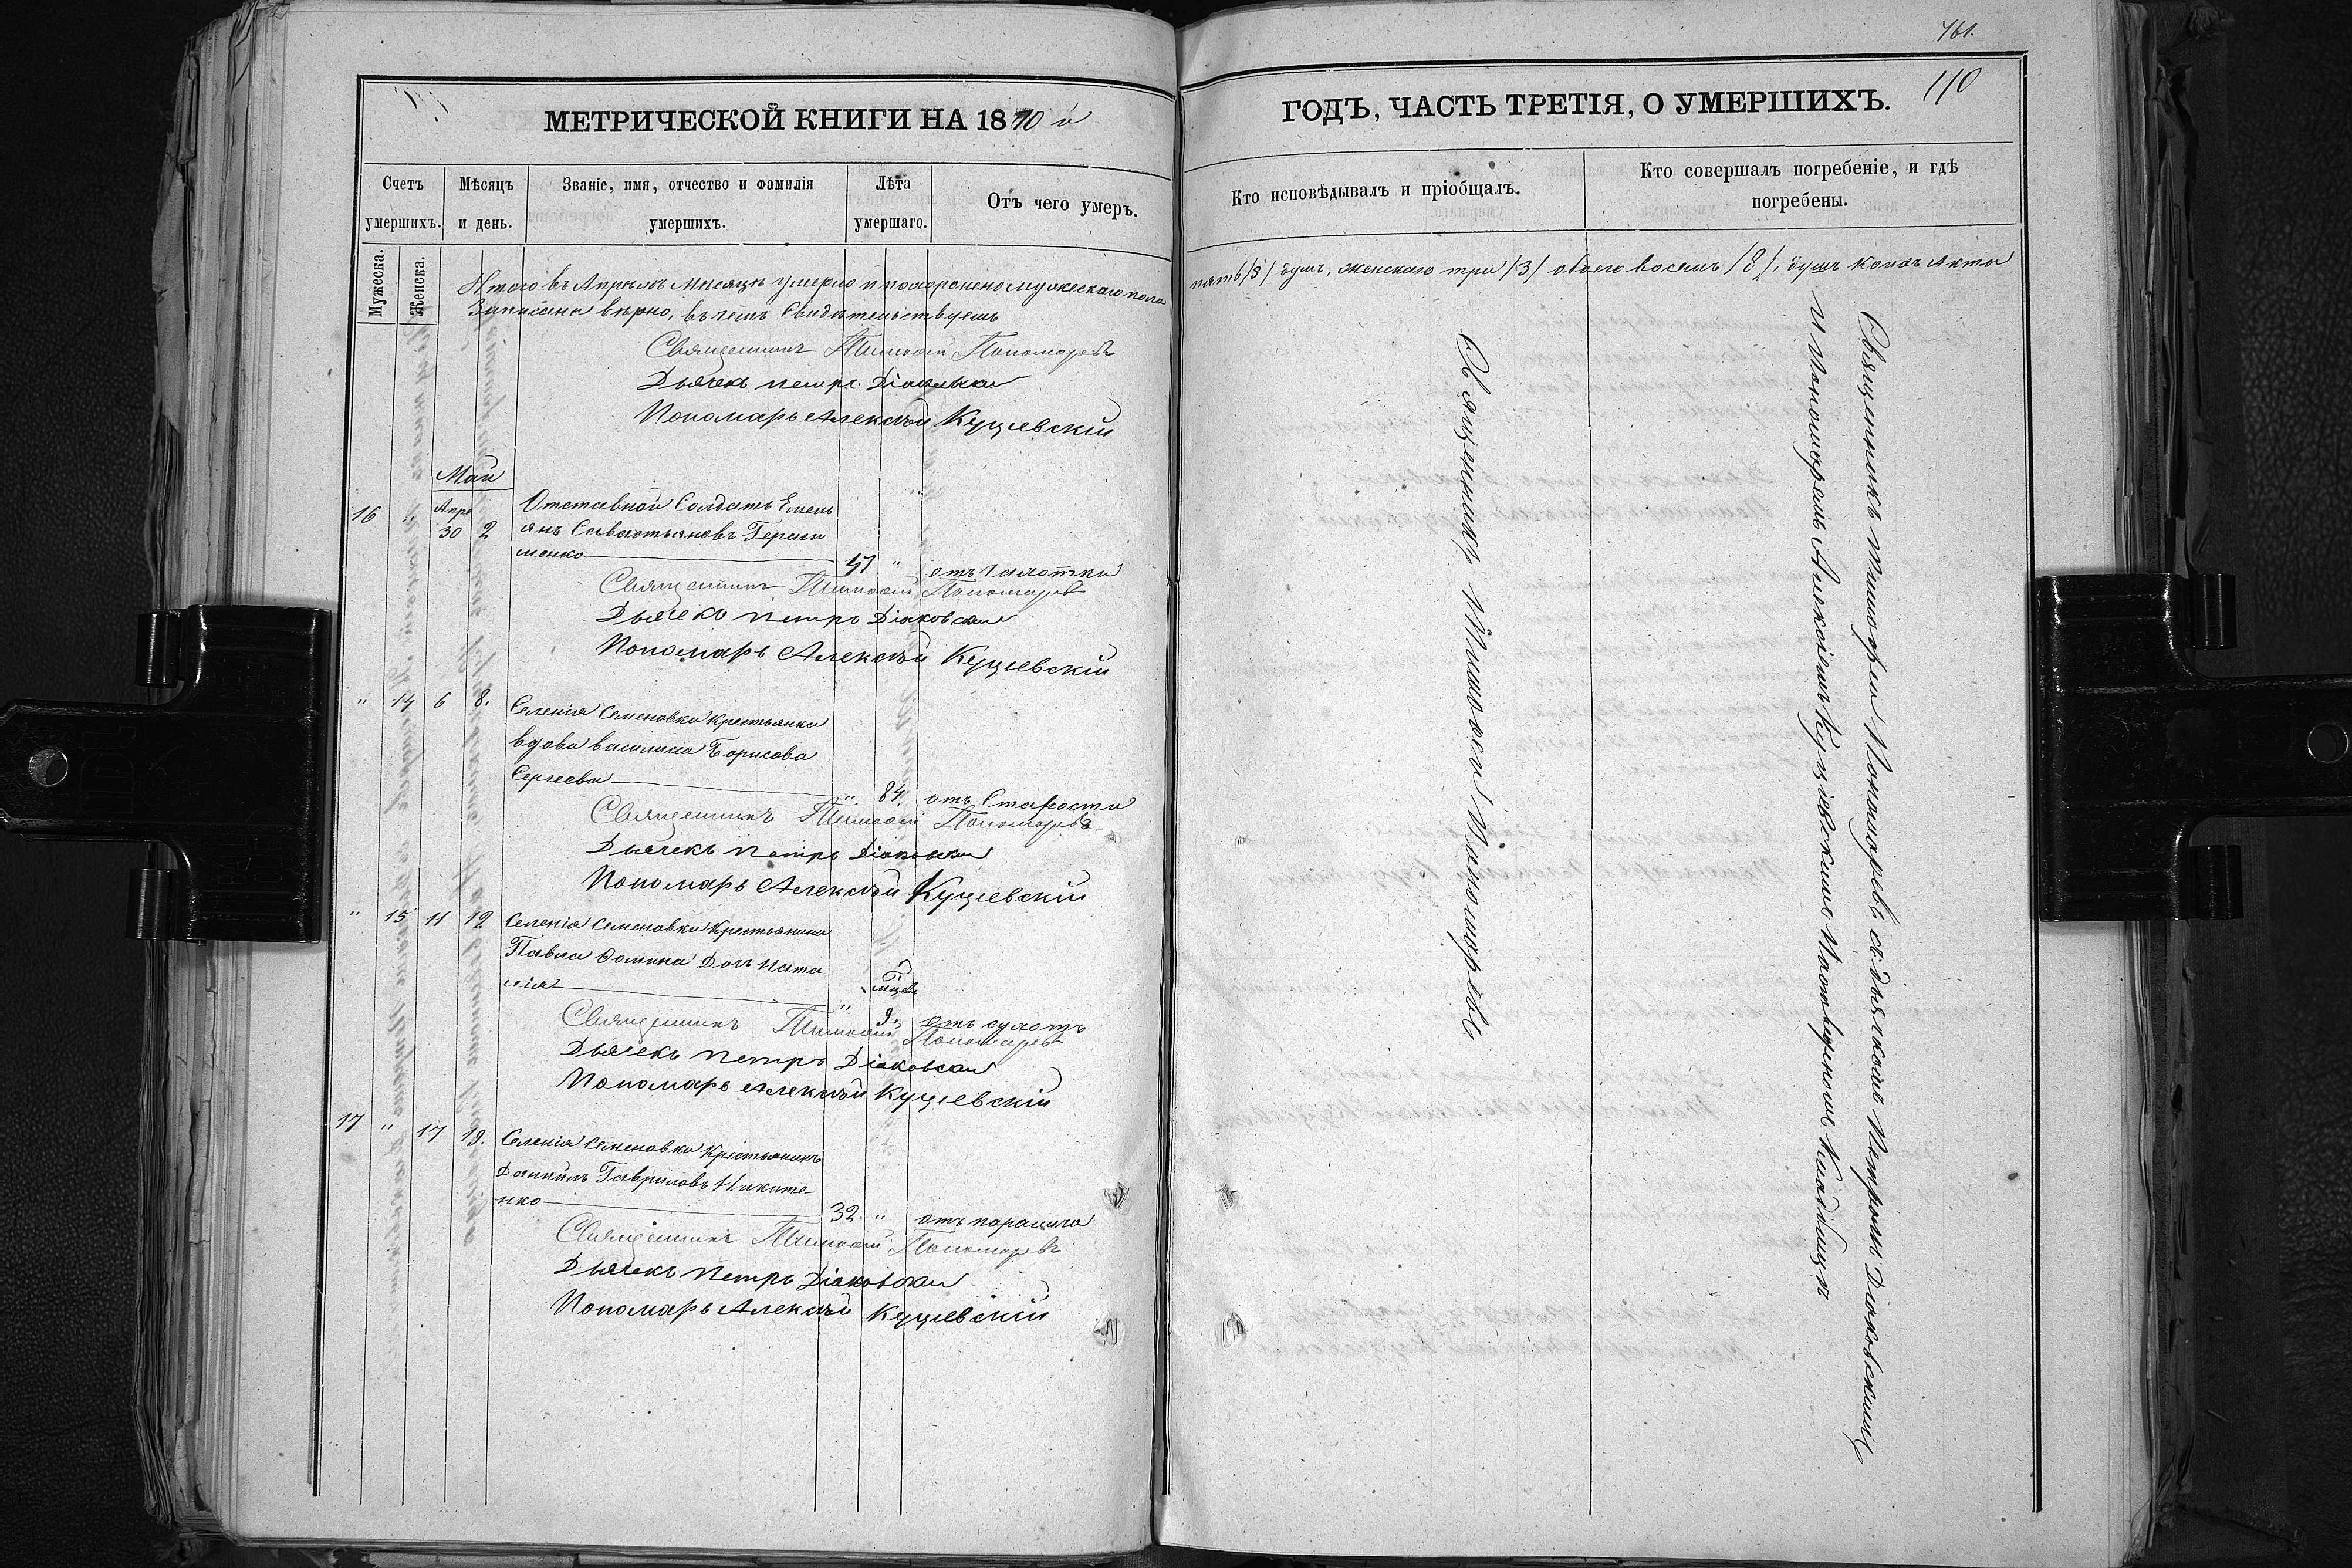 МЕТРИЧЕСКОЙ КНИГИ НА 1870 й
Счетъ умершихъ.
Мѣсяцъ и день.
Званіе, имя, отчество и фамилія умершихъ.
Лѣта умершаго.
Отъ чего умеръ.
Мужеска.
Женска.
Итого въ Апрѣлѣ Мѣсяцѣ умерло и похоронено мужескаго пола
Записано вѣрно, въ чемъ Свидѣтельствуемъ
Священникъ Тимофей Пономаревъ
Дьячекъ петръ Діаковскій
Пономарь Алексѣй Куцевскій
Май
16 " Апре 30 2 Отставной Солдатъ Емель
янъ Савастьяновъ Гераси
менко 47 " отъ Чахотки
Священникъ Тимофей Пономаревъ
Дьячекъ петръ Діаковскій
Пономарь Алексѣй Куцевскій
" 14 6 8. Селенія Семеновки Крестьянка
вдова василиса Борисова
Сергеева " 84. отъ Старости
Священникъ Тимофей Пономаревъ
Дьячекъ петръ Діаковскій
Пономарь Алексѣй Куцевскій
" 15 11 12 Селенія Семеновки Крестьянина
Павла Фомина Дочь Ната
лія " 9. отъ сухотъ
Священникъ Тимофей Пономаревъ
Дьячекъ петръ Діаковскій
Пономарь Алексѣй Куцевскій
17 " 17 18. Селенія Семеновки Крестьянинъ
Даніилъ Гавриловъ Ники
нко 32. "
Священникъ Тимофей Пономаревъ
Дьячекъ петръ Діаковскій
Пономарь Алексѣй Куцевскій
761.
110
ГОДЪ, ЧАСТЬ ТРЕТІЯ, О УМЕРШИХЪ.
Кто исповѣдывалъ и пріобщалъ.
Кто совершалъ погребеніе, и гдѣ погребены.
пять /5/ душъ, женскаго три /3/ обоего восемъ /8/, душъ
Священникъ Тимофей Пономаревъ
Священникъ тимофей Пономаревъ съ дьячкомъ Петромъ Діаковскимъ
и пономаремъ Алексѣемъ Куцевскимъ На Кладбищи